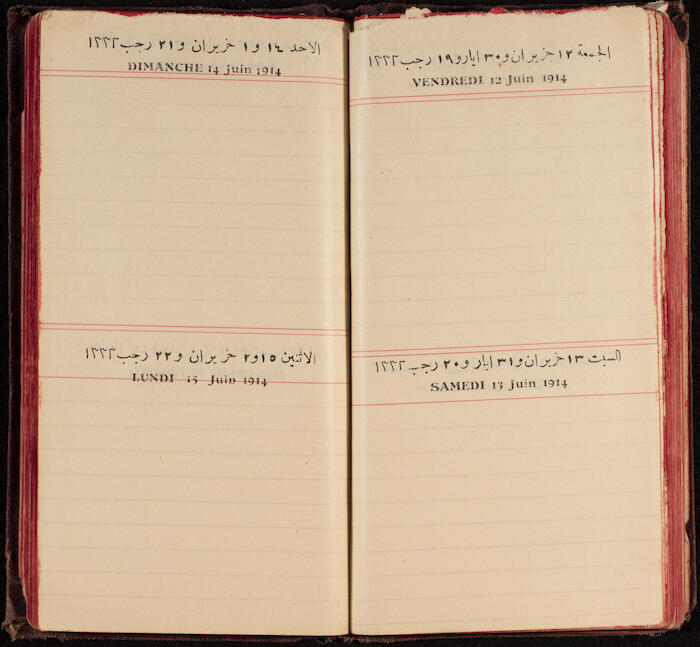 الجمعة ١٢ حزيران و٣٠ ايار و١٩ رجب ١٣٣٢
VENDREDI 12 Juin 1914
السبت ١٣ حزيران و٣١ ايار و٢٠ رجب ١٣٣٢
SAMEDI 13 Juin 1914
الاحد ١٤ و١ حزيران و٢١ رجب ١٣٣٢
DIMANCHE 14 Juin 1914
الاثنين ١٥ و٢ حزيران و٢٢ رجب ١٣٣٢
LUNDI 15 Juin 1914